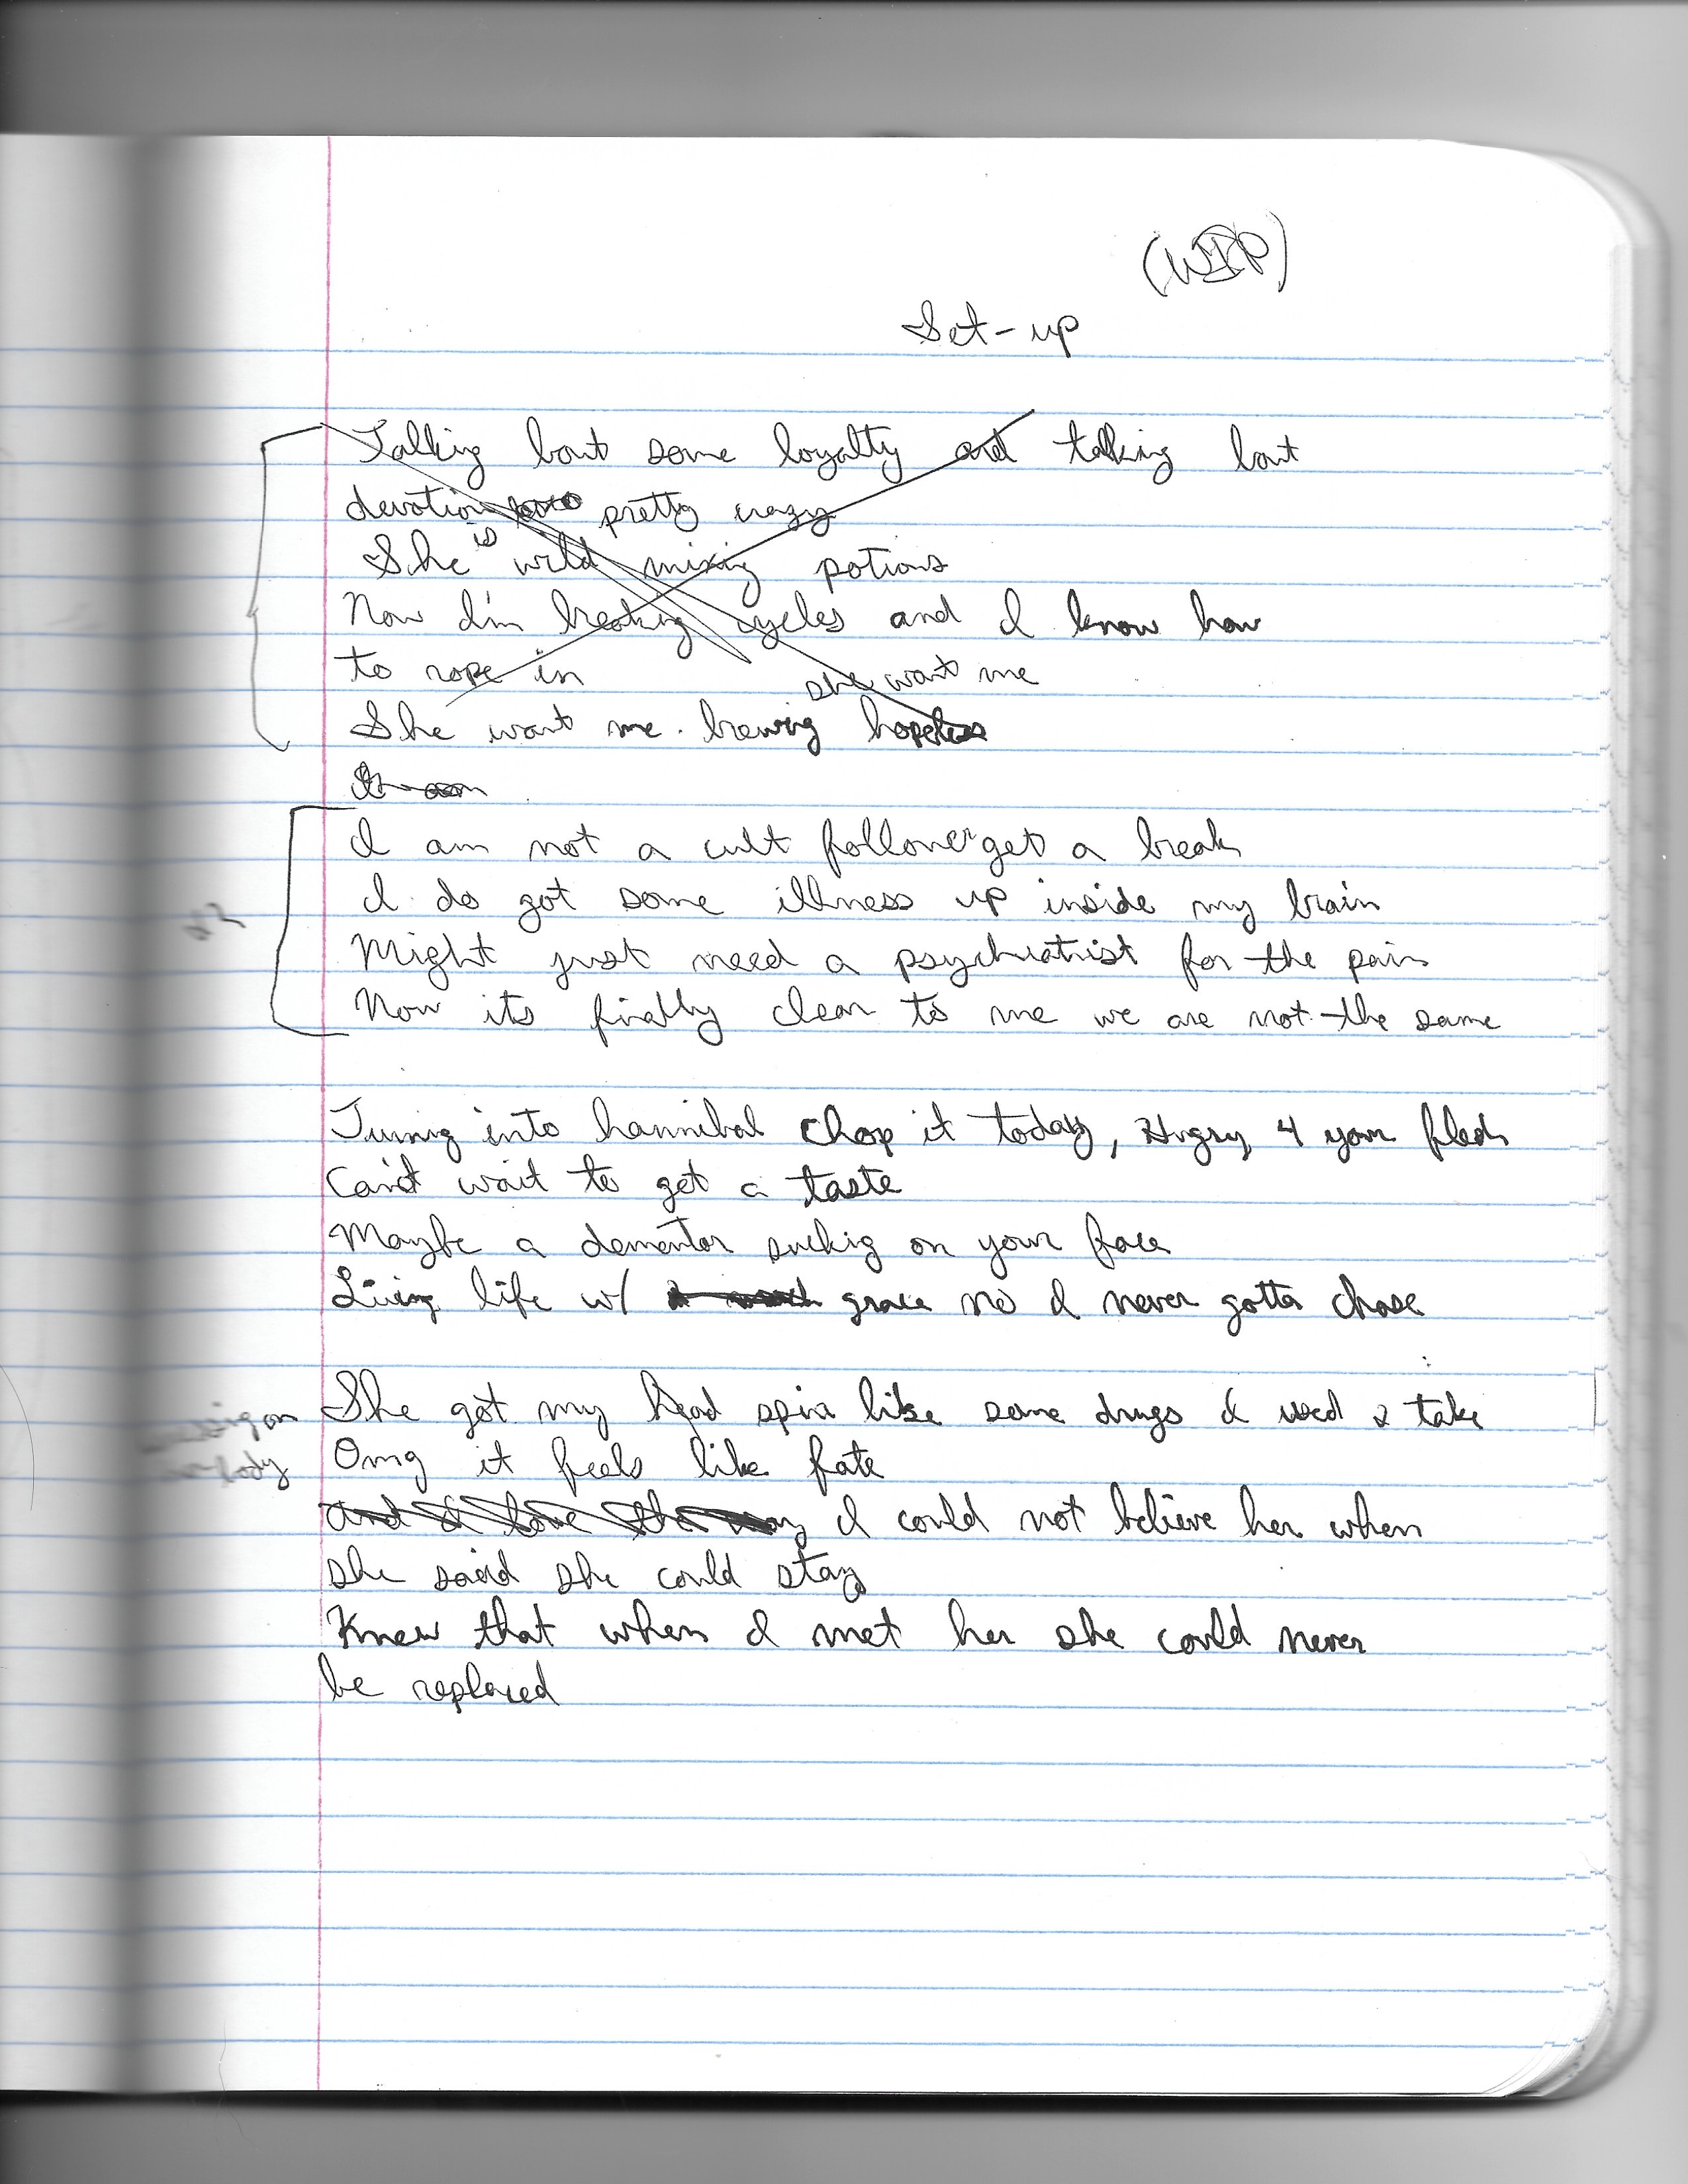 (WIP)
Set-up
Talking bout some loyalty and talking bout
devotion pretty crazy
She is wild mixing potions
Now I'm breaking cycles and I know how
to rope in
she want me
She want me brewing hopeless
I am not a cult follower get a break
I do got some illness up inside my brain
Might just need a psychiatrist for the pain
Now its finally clear to me we are not the same
Turning into hannibal chop it today, Hungry 4 your flesh
Can't wait to get a taste
Maybe a dementor sucking on your face
Living life w/ grace no I never gotta chase
She got my head spin like some drugs I used 2 take
Omg it feels like fate
and I love the way I could not believe her when
she said she could stay
Knew that when I met her she could never
be replaced